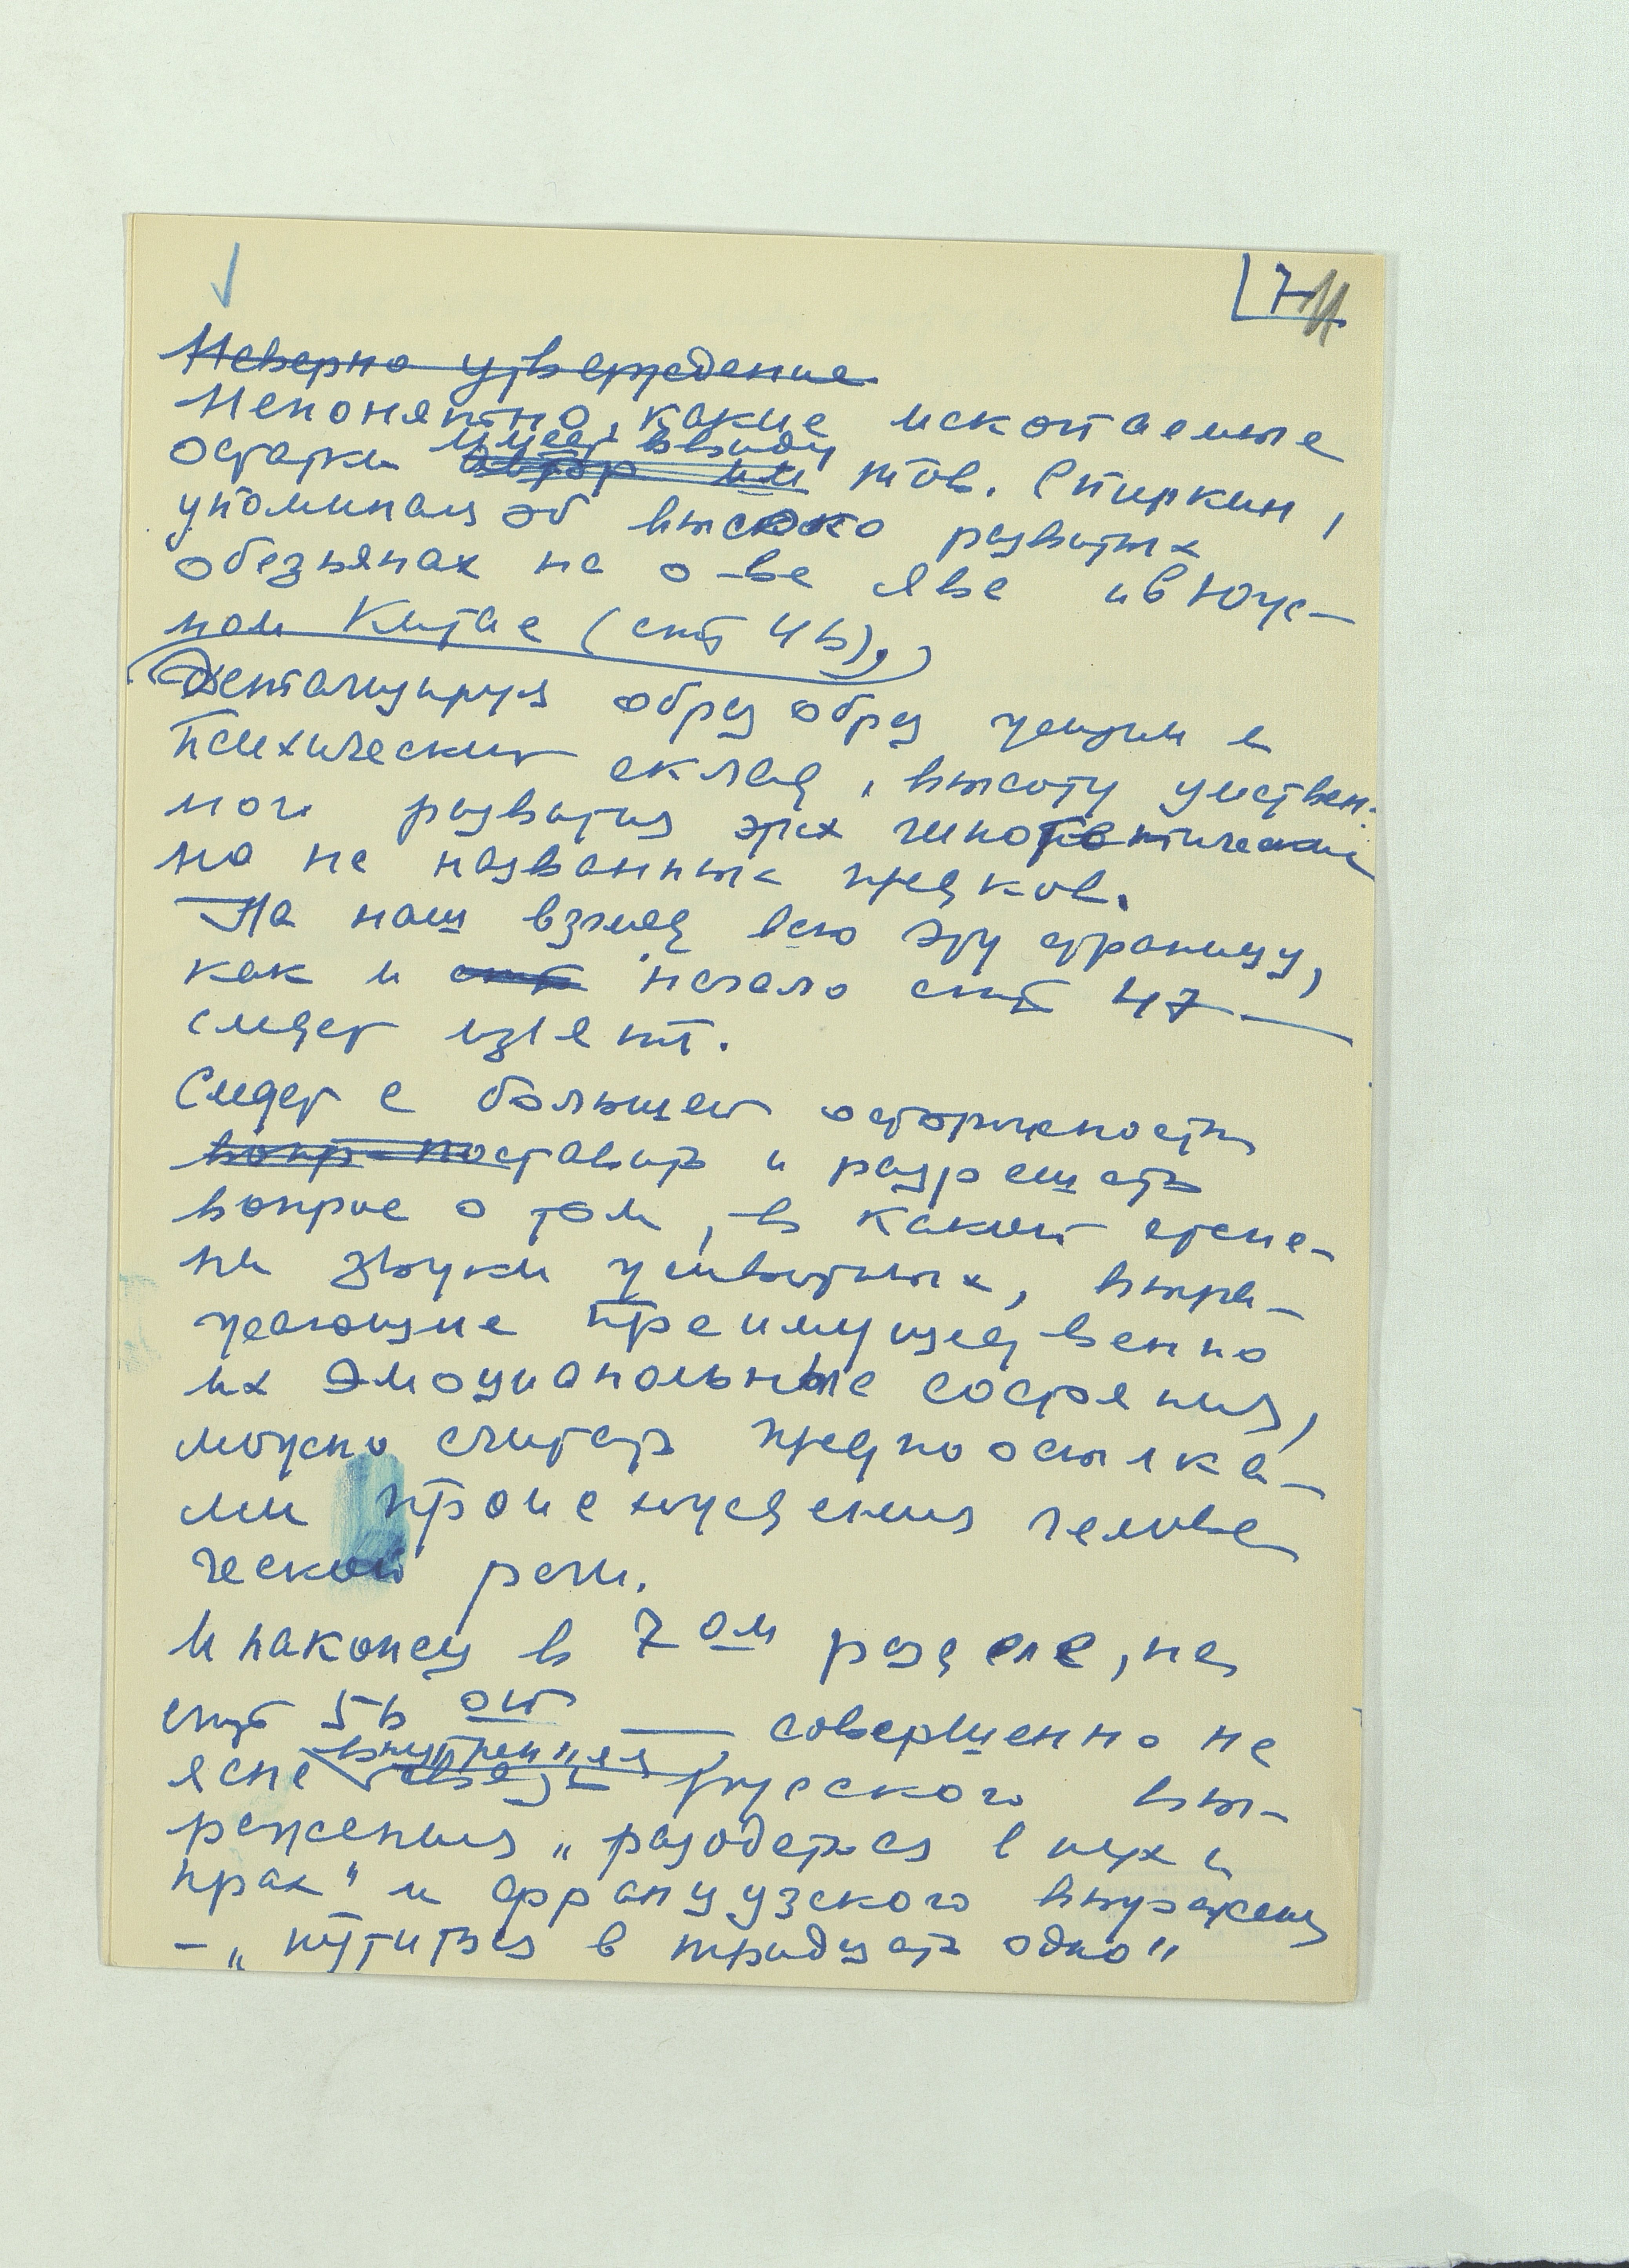 7
Неверно утверждение
Непонятно, какие ископаемые
имеет ввиду
остатки автор им тов. Спиркин,
упоминая об высоко развитых
обезьянах на о-ве Яве и в Юж-
ном Китае (стр 46),
детализируя образ образ жизни и
психический склад, высоту умствен-
ного развития этих гипотетических
но не названных предков.
На наш взгляд всю эту страницу,
как и начало стр 47 —
следует изъять.
Следует с большей осторожностью
вопр поставить и разрешать
вопрос о том, в какой степе-
ни звуки животных, выра-
жающие преимущественно
их эмоциональные состояния,
можно считать предпоосылка-
ми происхождения челове
ческой речи.
И наконец в 7ом разделе, на
стр 56 ой — совершенно не
внутренняя
ясно связь русского вы-
ражения „разодеться в пух и
прах" и французского выражения
- „пуститься в тридцать одно"